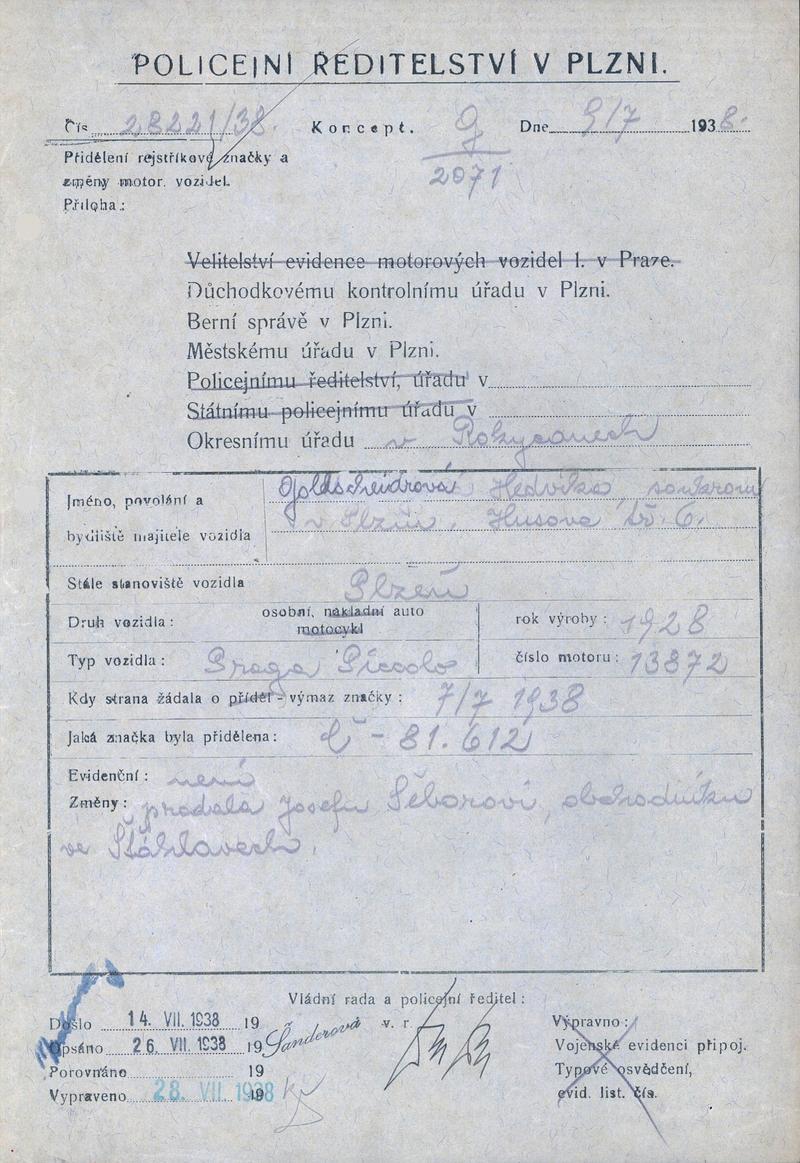 POLICEJNÍ ŘEDITELSTVÍ V PLZNI.
Čís. 28221/38. Koncept. Dne 9/7 1938.
Přidělení rejstříkové značky a
změny motor. vozidel.
Příloha:
2071
Velitelství evidence motorových vozidel 1. v Praze.
Důchodkovému kontrolnímu úřadu v Plzni.
Berní správě v Plzni.
Městskému úřadu v Plzni.
Policejnímu ředitelství, úřadu v
Státnímu policejnímu úřadu v
Okresnímu úřadu v Rokycanech
Jméno, povolání a
bydliště majitele vozidla
Goldscheidrová Hedvika, soukrom
v Plzni, Husova tř. 6.
Stálé stanoviště vozidla Plzeň
Druh vozidla: osobní, nákladní auto
motocykl
rok výroby: 1928
Typ vozidla: Praga Piccolo číslo motoru: 13872
Kdy strana žádala o příděl - výmaz značky: 7/7 1938
Jaká značka byla přidělena: Č - 81.612
Evidenční: není
Změny: prodala Josefu Šeborovi, obchodníku
ve Šťáhlavech.
Vládní rada a policejní ředitel:
Došlo 14. VII. 1938 19
v. r
Opsáno 26. VII. 1938 19 Šanderová
Porovnáno 19
Vypraveno 28. VII. 1938 19
Výpravno:
Vojenské evidenci připoj.
Typové osvědčení,
evid. list. čís.